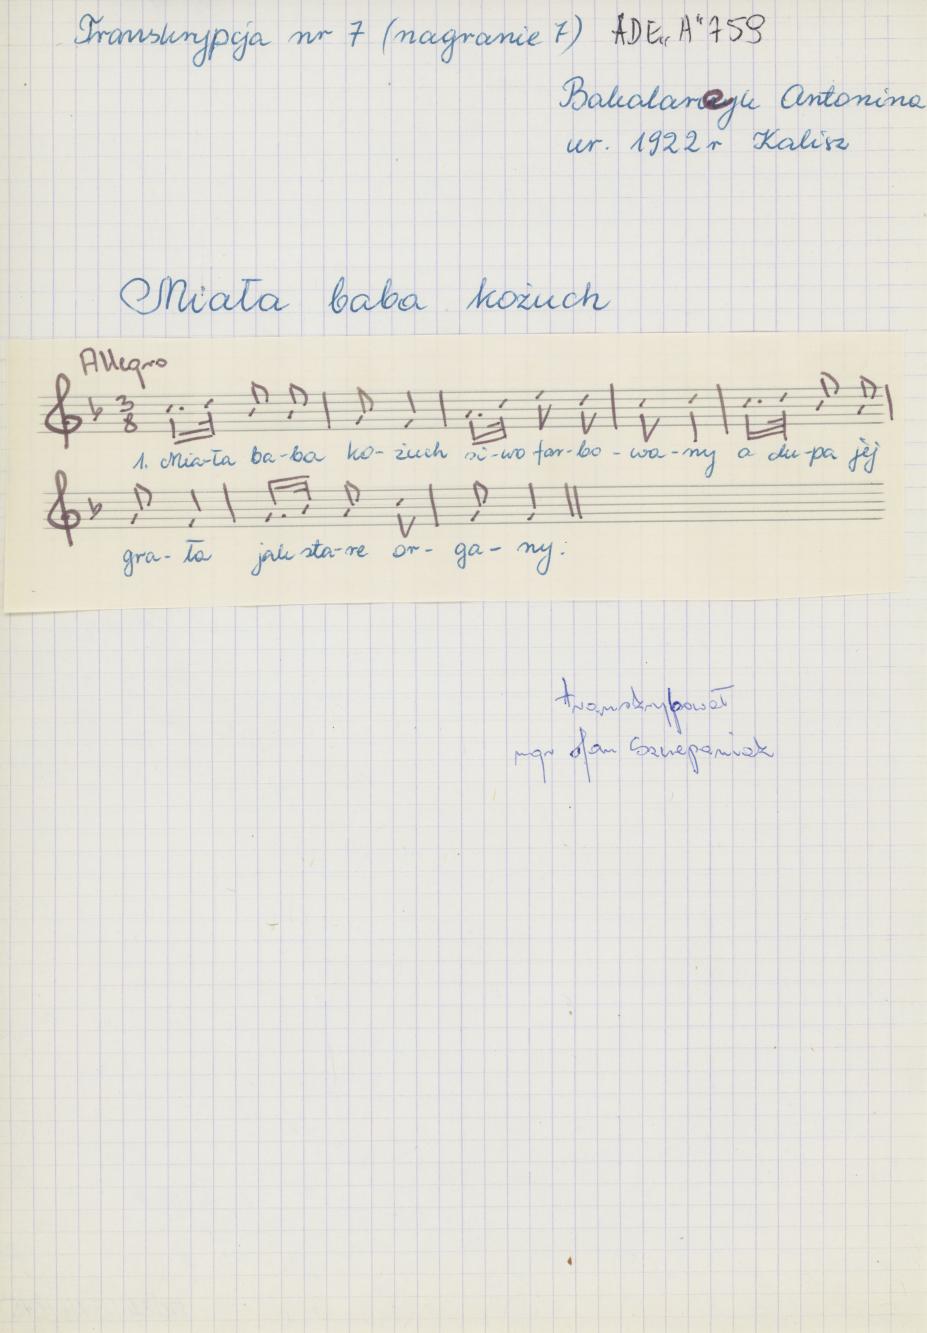 Transkrypcja nr 7 (nagranie 7) ADE„A"759
Bakalarczyk Antonina
ur. 1922 r Kalisz
Miała baba kożuch
Allegro
3
8
1. Mia-ła ba-ba ko-żuch si-wo far-bo-wa-ny a du-pa jéj
gra-ła jak sta-re or-ga-ny.
transkrybował
mgr Jan Szczepaniak